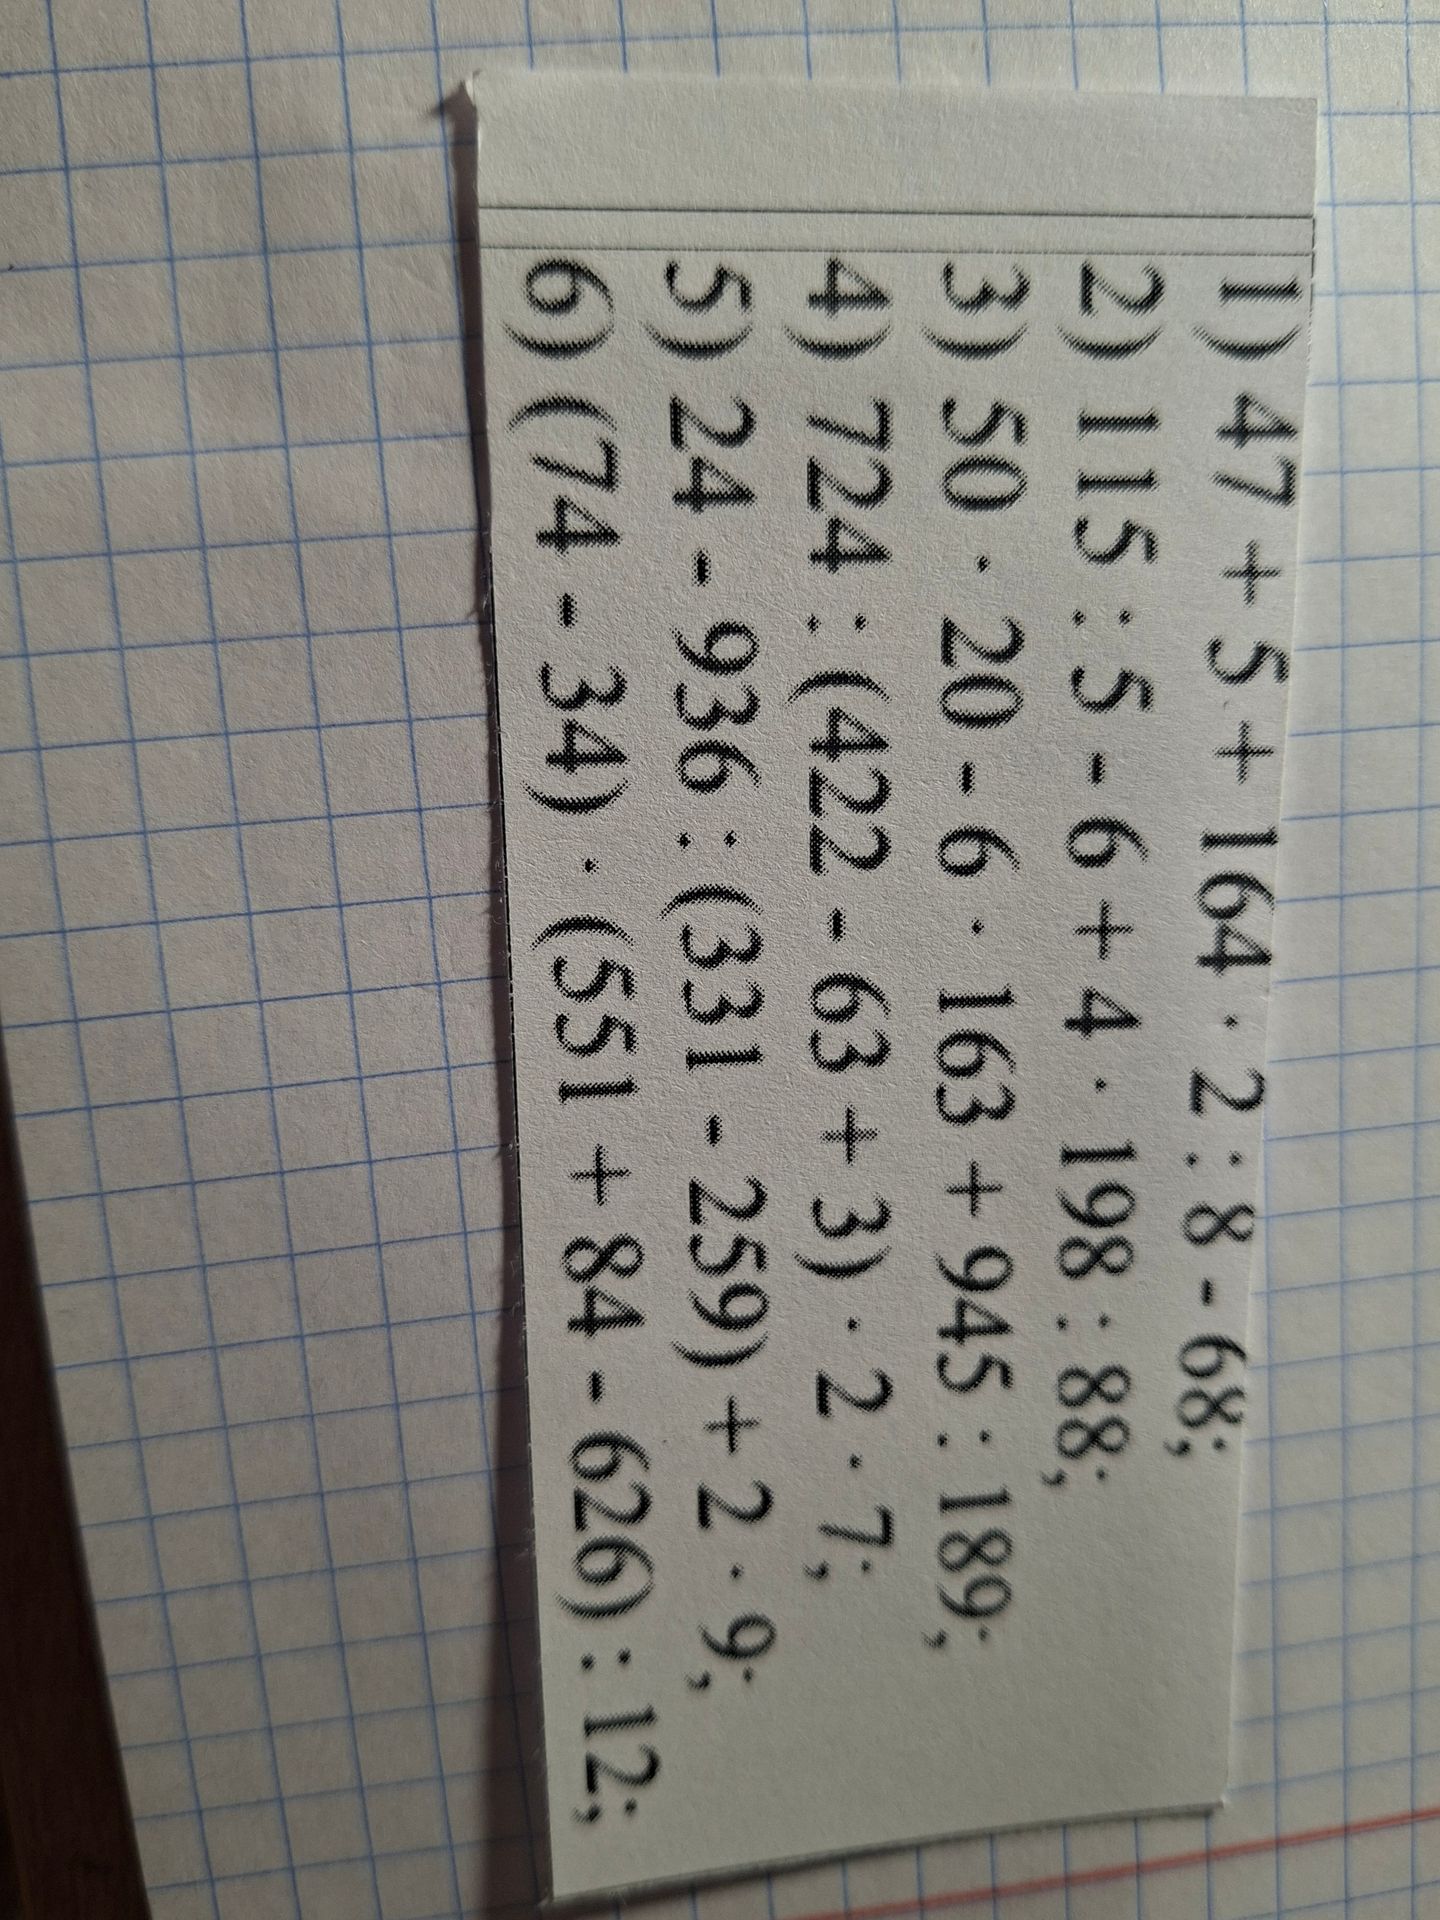 1) 47 + 5 + 164 · 2 : 8 - 68;
2) 115 : 5 - 6 + 4 · 198 : 88;
3) 50 · 20 - 6 · 163 + 945 : 189;
4) 724 : (422 - 63 + 3) · 2 · 7;
5) 24 - 936 : (331 - 259) + 2 · 9;
6) (74 - 34) · (551 + 84 - 626) : 12;